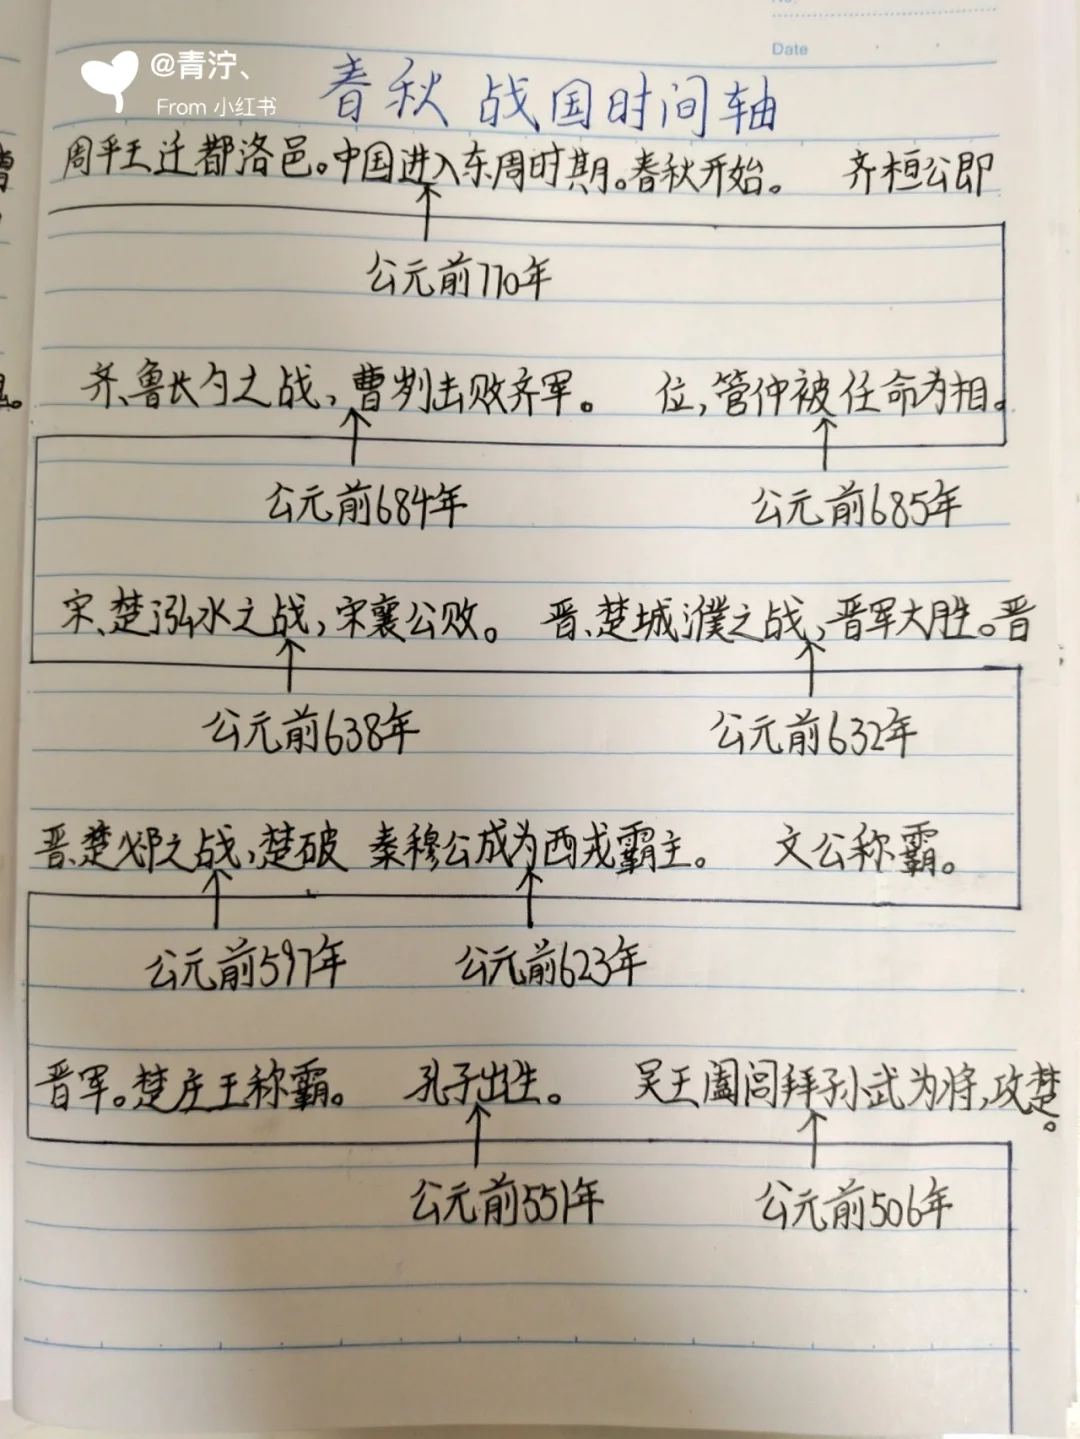 @青泞、
From 小红书
No.
Date
春秋战国时间轴
周平王迁都洛邑。中国进入东周时期。春秋开始。 齐桓公即
公元前770年
齐、鲁长勺之战,曹刿击败齐军。 位,管仲被任命为相。
公元前684年 公元前685年
宋、楚泓水之战,宋襄公败。 晋、楚城濮之战,晋军大胜。晋
公元前638年 公元前632年
晋、楚邲之战,楚破 秦穆公成为西戎霸主。 文公称霸。
公元前597年 公元前623年
晋军。楚庄王称霸。 孔子出生。 吴王阖闾拜孙武为将,攻楚。
公元前551年 公元前506年